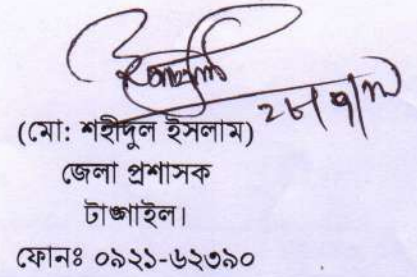 (মো: শহীদুল ইসলাম)
জেলা প্রশাসক
টাঙ্গাইল।
ফোনঃ ০৯২১-৬২৩৯০